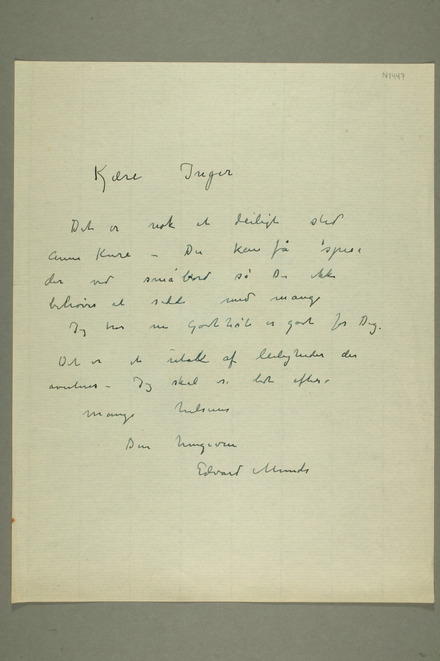 N 1447
Kjære Inger
Det er nok et deiligt sted
Du kan få spise
der ved småbord så Du ikke
behøver at sidde med mange
Jeg tror Godthåb er godt for Dig.
Det er et utall af leiligheder der
averteres – Jeg skal se lidt efter.
Mange hilsener
Din hengivne
Edvard Munch